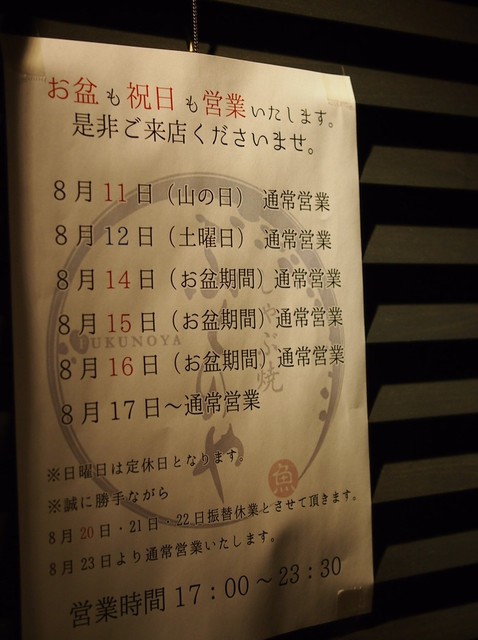 お盆も祝日も営業いたします。
是非ご来店くださいませ。
8月11日（山の日） 通常営業
8月12日（土曜日） 通常営業
8月14日（お盆期間）通常営業
8月15日（お盆期間）通常営業
8月16日（お盆期間）通常営業
8月17日～通常営業
※日曜日は定休日となります。
※誠に勝手ながら
8月20日・21日・22日振替休業とさせて頂きます。
8月23日より通常営業いたします。
営業時間17：00～23：30
しゃぶ焼
ふくのや
FUKUNOYA
魚